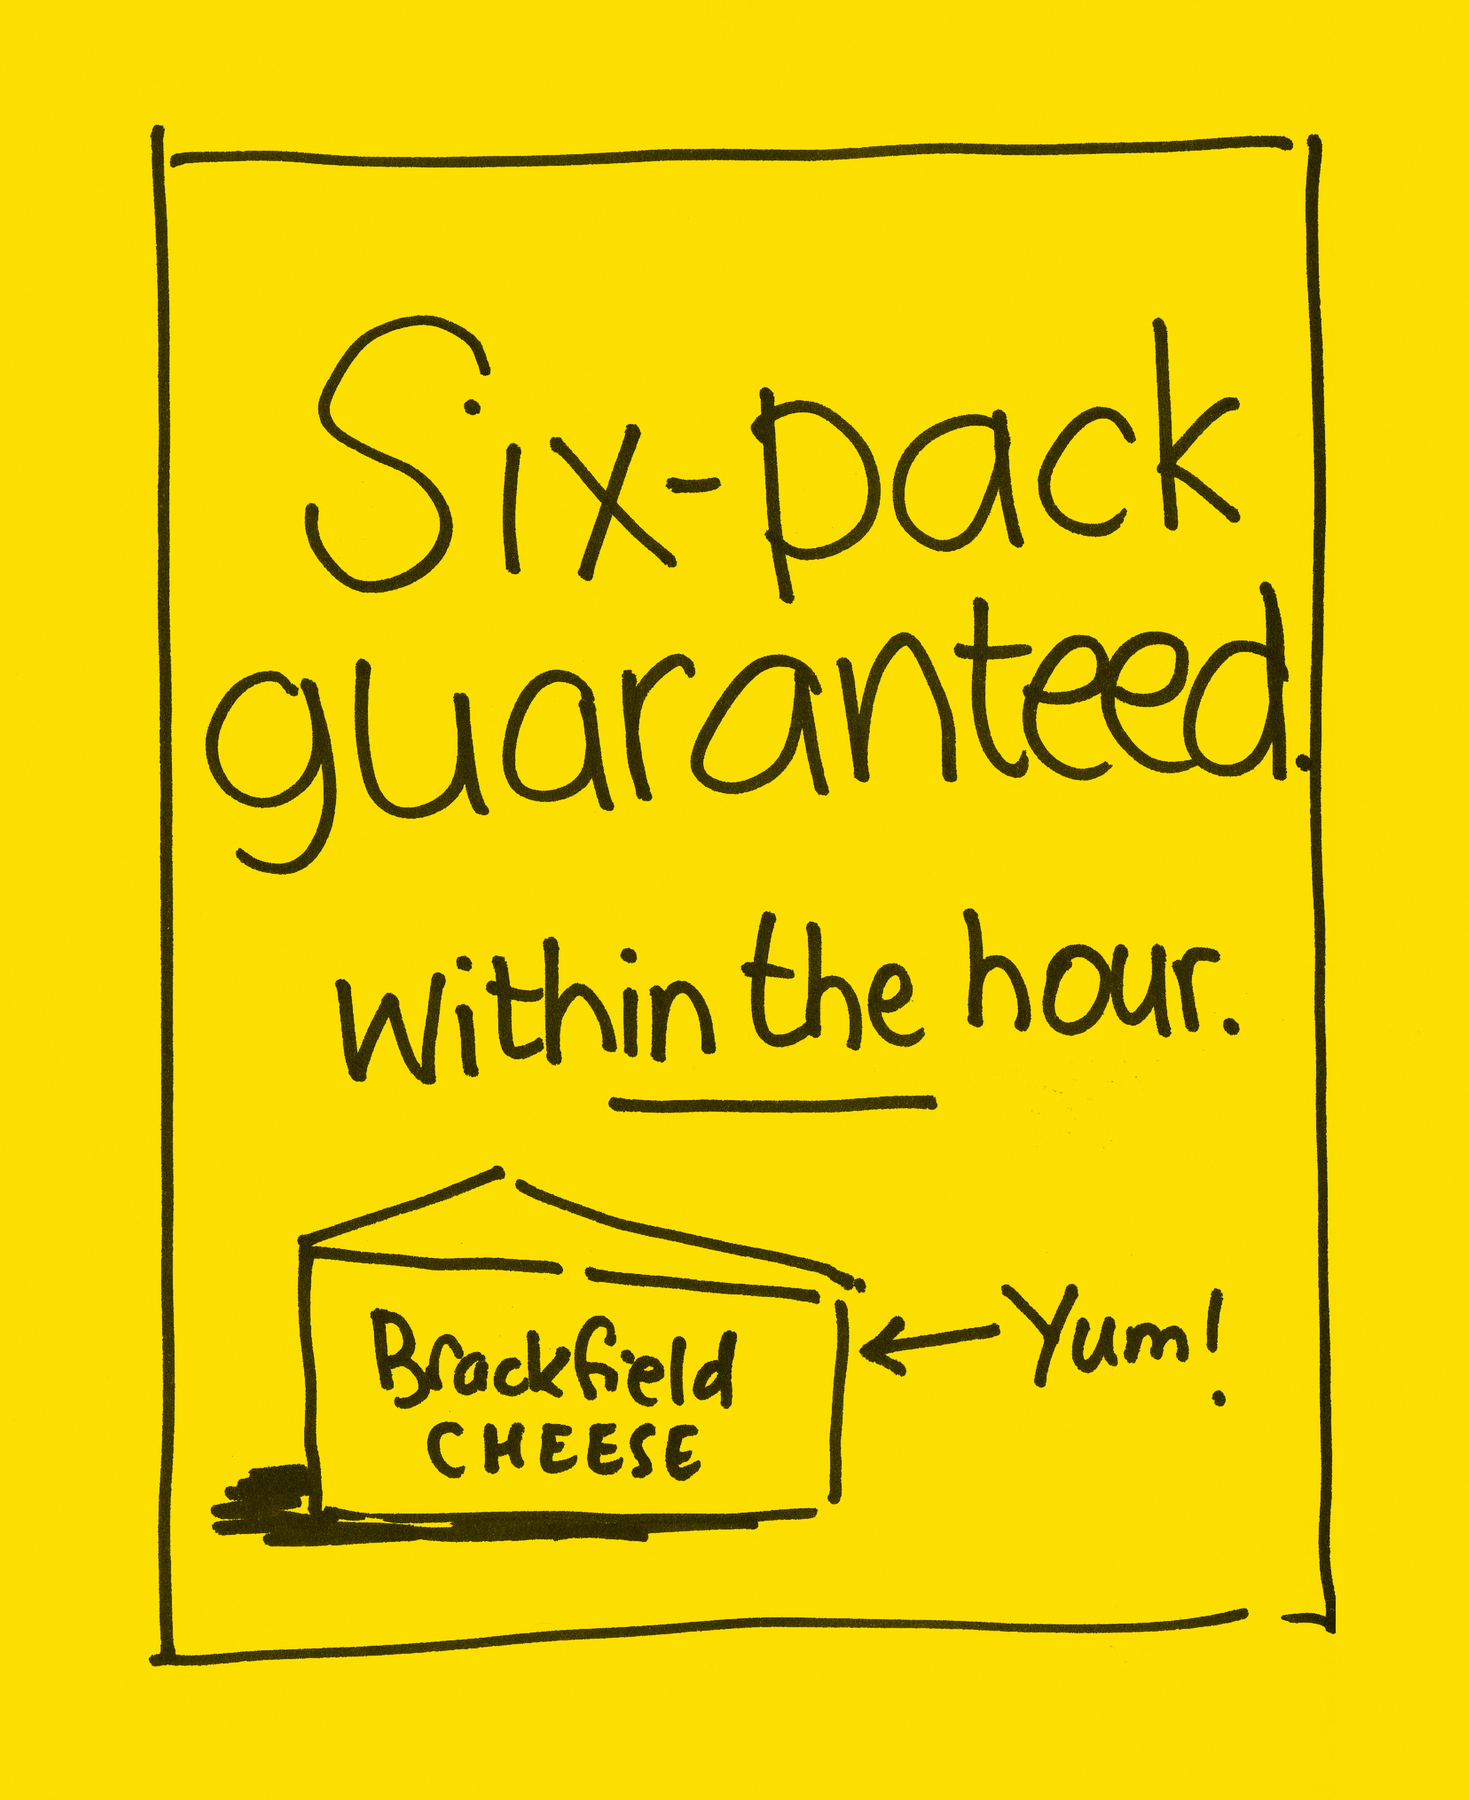 Six-pack
guaranteed.
Within the hour.
Brackfield
CHEESE
Yum!